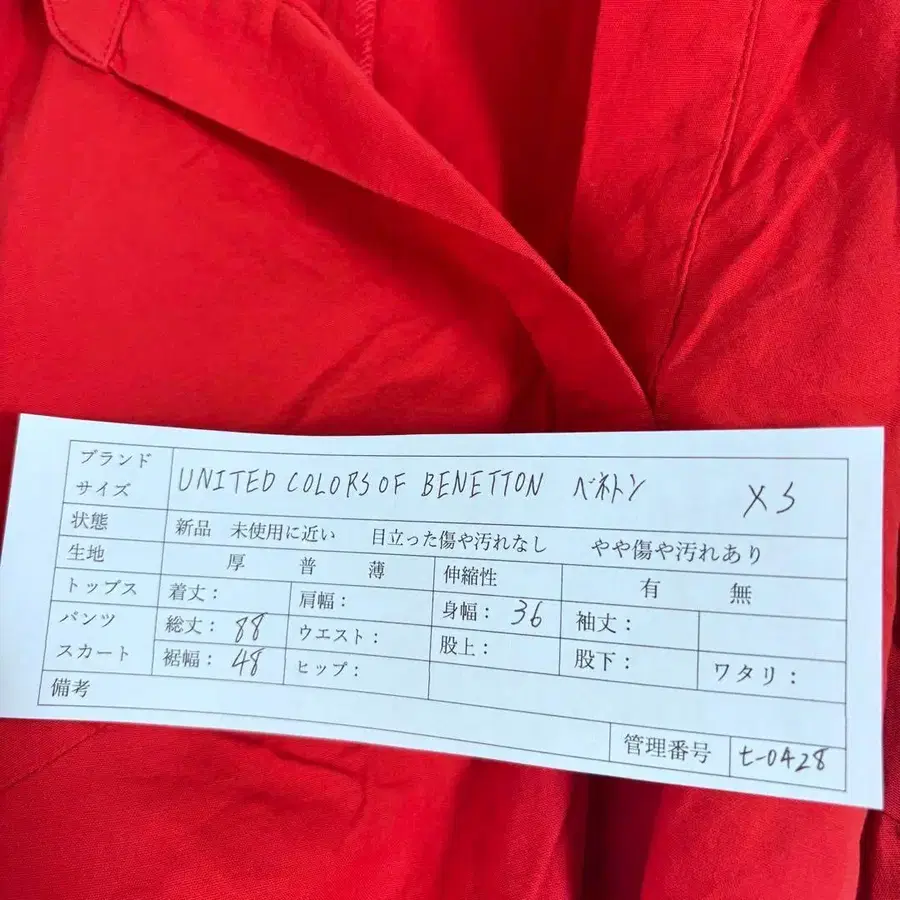 ブランド
サイズ
UNITED COLORS OF BENETTON ベネトン XS
状態 新品 未使用に近い 目立った傷や汚れなし やや傷や汚れあり
生地 厚 普 薄 伸縮性 有 無
トップス 着丈: 肩幅: 身幅: 36 袖丈:
パンツ 総丈: 88 ウエスト: 股上: 股下: ワタリ:
スカート 裾幅: 48 ヒップ:
備考
管理番号 t-0428